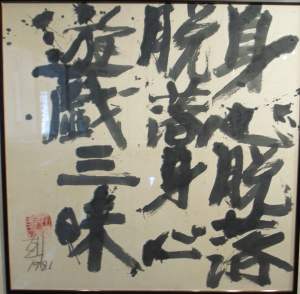 身心脱落
脱落身心
遊戯三昧
1981